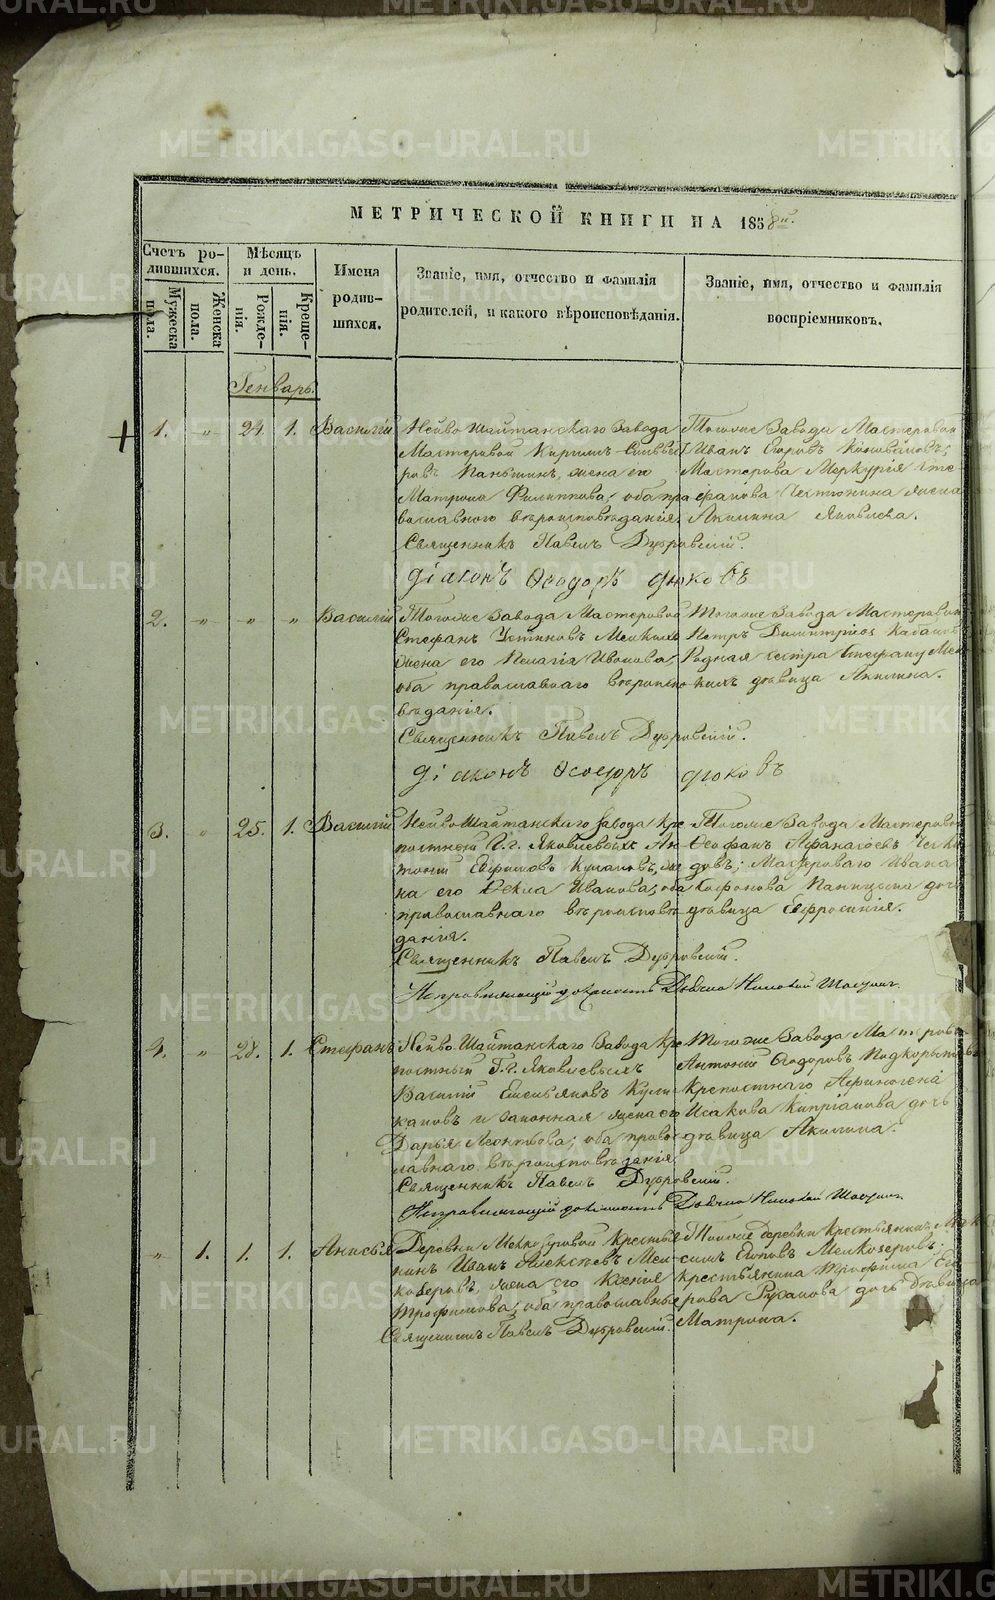 МЕТРИЧЕСКОЙ КНИГИ НА 1858й.
Счетъ ро-
дившихся.
Мѣсяцъ
и день.
Имена
родив-
шихся.
Званіе, имя, отчество и фамилія
родителей, и какого вѣроисповѣданія.
Званіе, имя, отчество и фамилія
воспріемниковъ.
Мужеска
пола.
Женска
пола.
Рожде-
нія.
Креще-
нія.
Генварь.
1. „ 24. 1. Василій
Нейво Шайтанскаго Завода
Мастеровой Кирилъ
Паньшинъ, жена его
Матрона Филиппова; оба пра
вославнаго вѣроисповѣданія.
Священникъ Павелъ Дубровскій.
Діаконъ Ѳеодоръ
Тогоже Завода Мастеровой
Иванъ Егоровъ Коноваловъ;
Мастерова Меркурія Сте
фанова жена
Акилина Яковлева.
2. „ „ „ Василій
Тогоже Завода Мастеровой
Стефанъ Устиновъ Мелкихъ
жена его Пелагія Иванова;
оба православнаго вѣроиспо
вѣданія.
Священникъ Павелъ Дубровскій.
Діаконъ Ѳеодоръ
Тогоже Завода Мастеровой
Петръ Димитріев Кабаков
Родная сестра Стефану Мел
кихъ дѣвица Акилина.
3. „ 25. 1. Василій
Нейво Шайтанскаго Завода Кре
постный Г.г. Яковлевыхъ Ан
тоній Ефимовъ же
на его Ѳекла Иванова; оба
православнаго вѣроисповѣ
данія.
Священникъ Павелъ Дубровскій.
Исправляющій должность Дьячка Николай
Тогоже Завода Мастеровой
Ѳеофанъ Афанасьевъ
Мастероваго Ивана
Паницына дочь
дѣвица Ефросинія.
4. „ 28. 1. Стефанъ
Нейво Шайтанскаго Завода Кре
постный Г.г. Яковлевыхъ
Василій Емельяновъ Кули
каповъ и законная жена его
Дарья Леонтьева; оба право
славнаго вѣроисповѣданія
Священникъ Павелъ Дубровскій.
Исправляющій должность Дьячка Николай
Тогоже Завода Мастеровой
Антоній Ѳеодоровъ Подкорытовъ
Крепостнаго Афиногена
Исакова Кипріанова дочь
дѣвица Акилина.
„ 1. 1. 1. Анисья
Деревни Мелкозеровой крестья
нинъ Иванъ Алексѣевъ Мел
козеровъ, жена его Ксенія
Трофимова; оба православные
Священникъ Павелъ Дубровскій.
Тойже деревни крестьянинъ Мак
симъ Мелкозеровъ;
крестьянина Трофима
дочь дѣвица
Матрона.
METRIKI.GASO-URAL.RU